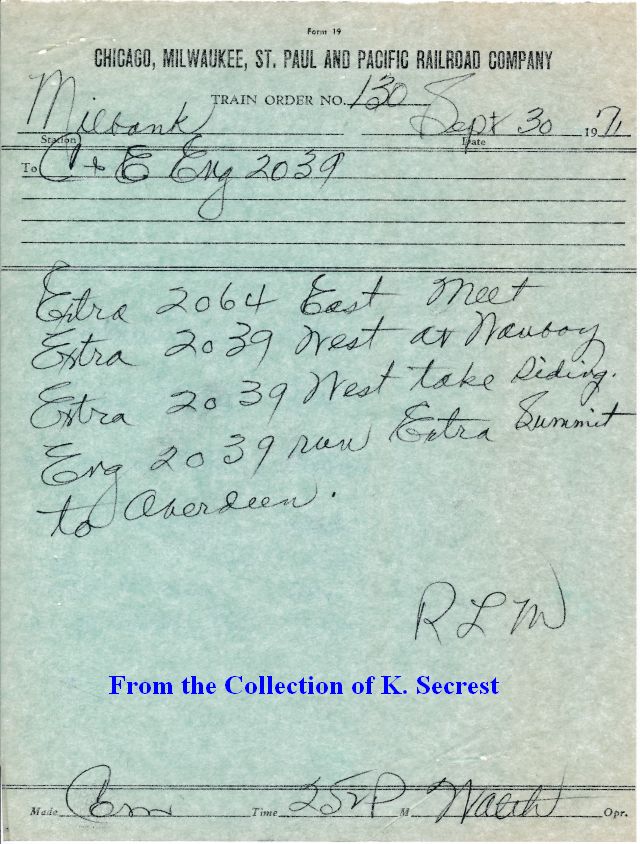 Form 19
CHICAGO, MILWAUKEE, ST. PAUL AND PACIFIC RAILROAD COMPANY
TRAIN ORDER NO. 130
Milbank Sept 30 1971
Station Date
To C + E Eng 2039
Extra 2064 East Meet
Extra 2039 West at Waubay
Extra 2039 West take Siding.
Eng 2039 run Extra Summit
to Aberdeen.
R L M
From the Collection of K. Secrest
Made Com Time 252 P M Opr.